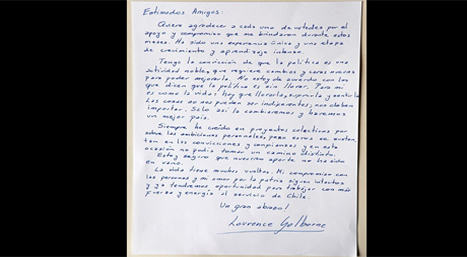 Estimados Amigos:
Quiero agradecer a cada uno de ustedes por el
apoyo y compromiso que me brindaron durante estos
meses. Ha sido una experiencia única y una etapa
de crecimiento y aprendizaje intenso.
Tengo la convicción de que la política es una
actividad noble, que requiere cambios y caras nuevas
para poder mejorarla. No estoy de acuerdo con los
que dicen que la política es sin llorar. Para mí
es como la vida: hay que llorarla, y
Las cosas no nos pueden ser indiferentes, nos deben
importar. Sólo así la cambiaremos y haremos
un mejor país.
Siempre he creído en proyectos colectivos por
sobre las ambiciones personales, pero estos se
en las convicciones y y en esta
ocasión no podía tomar un camino distinto.
Estoy seguro que nuestro aporte no ha sido
en vano.
La vida tiene muchas vueltas. Mi compromiso con
las personas y mi amor por la patria siguen intactos
y ya tendremos oportunidad para trabajar con más
fuerza y energía al servicio de Chile
Un gran abrazo!
Laurence Golborne